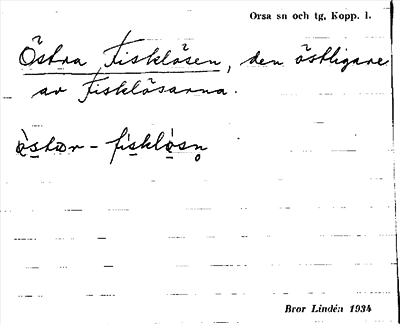 Orsa sn och tg, Kopp. l.
Östra Fisklösen, den östligare
av Fisklösarna.
òstær - fisklòsn̥
Bror Lindén 1934